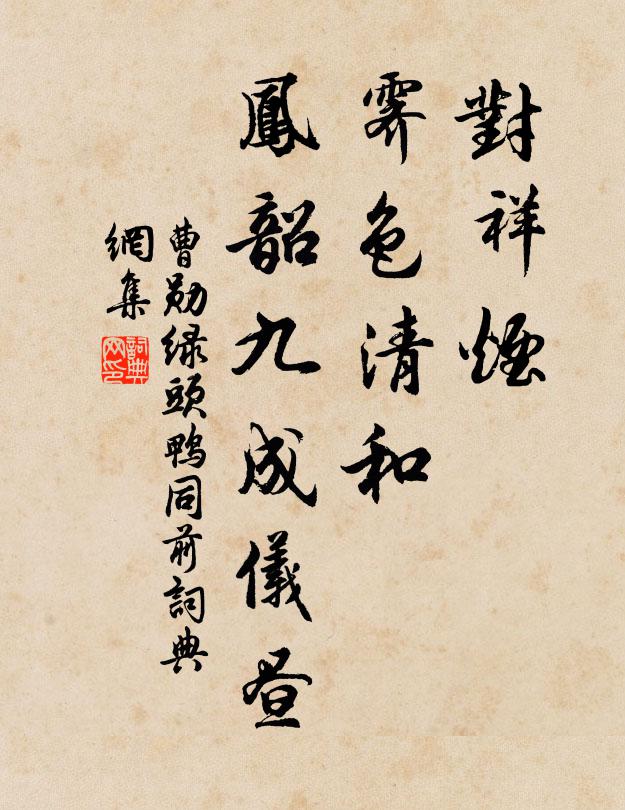 對祥煙
霽色清和
鳳韶九成儀晝
曹勛緑頭鴨同前詞典
網集
詞典網印